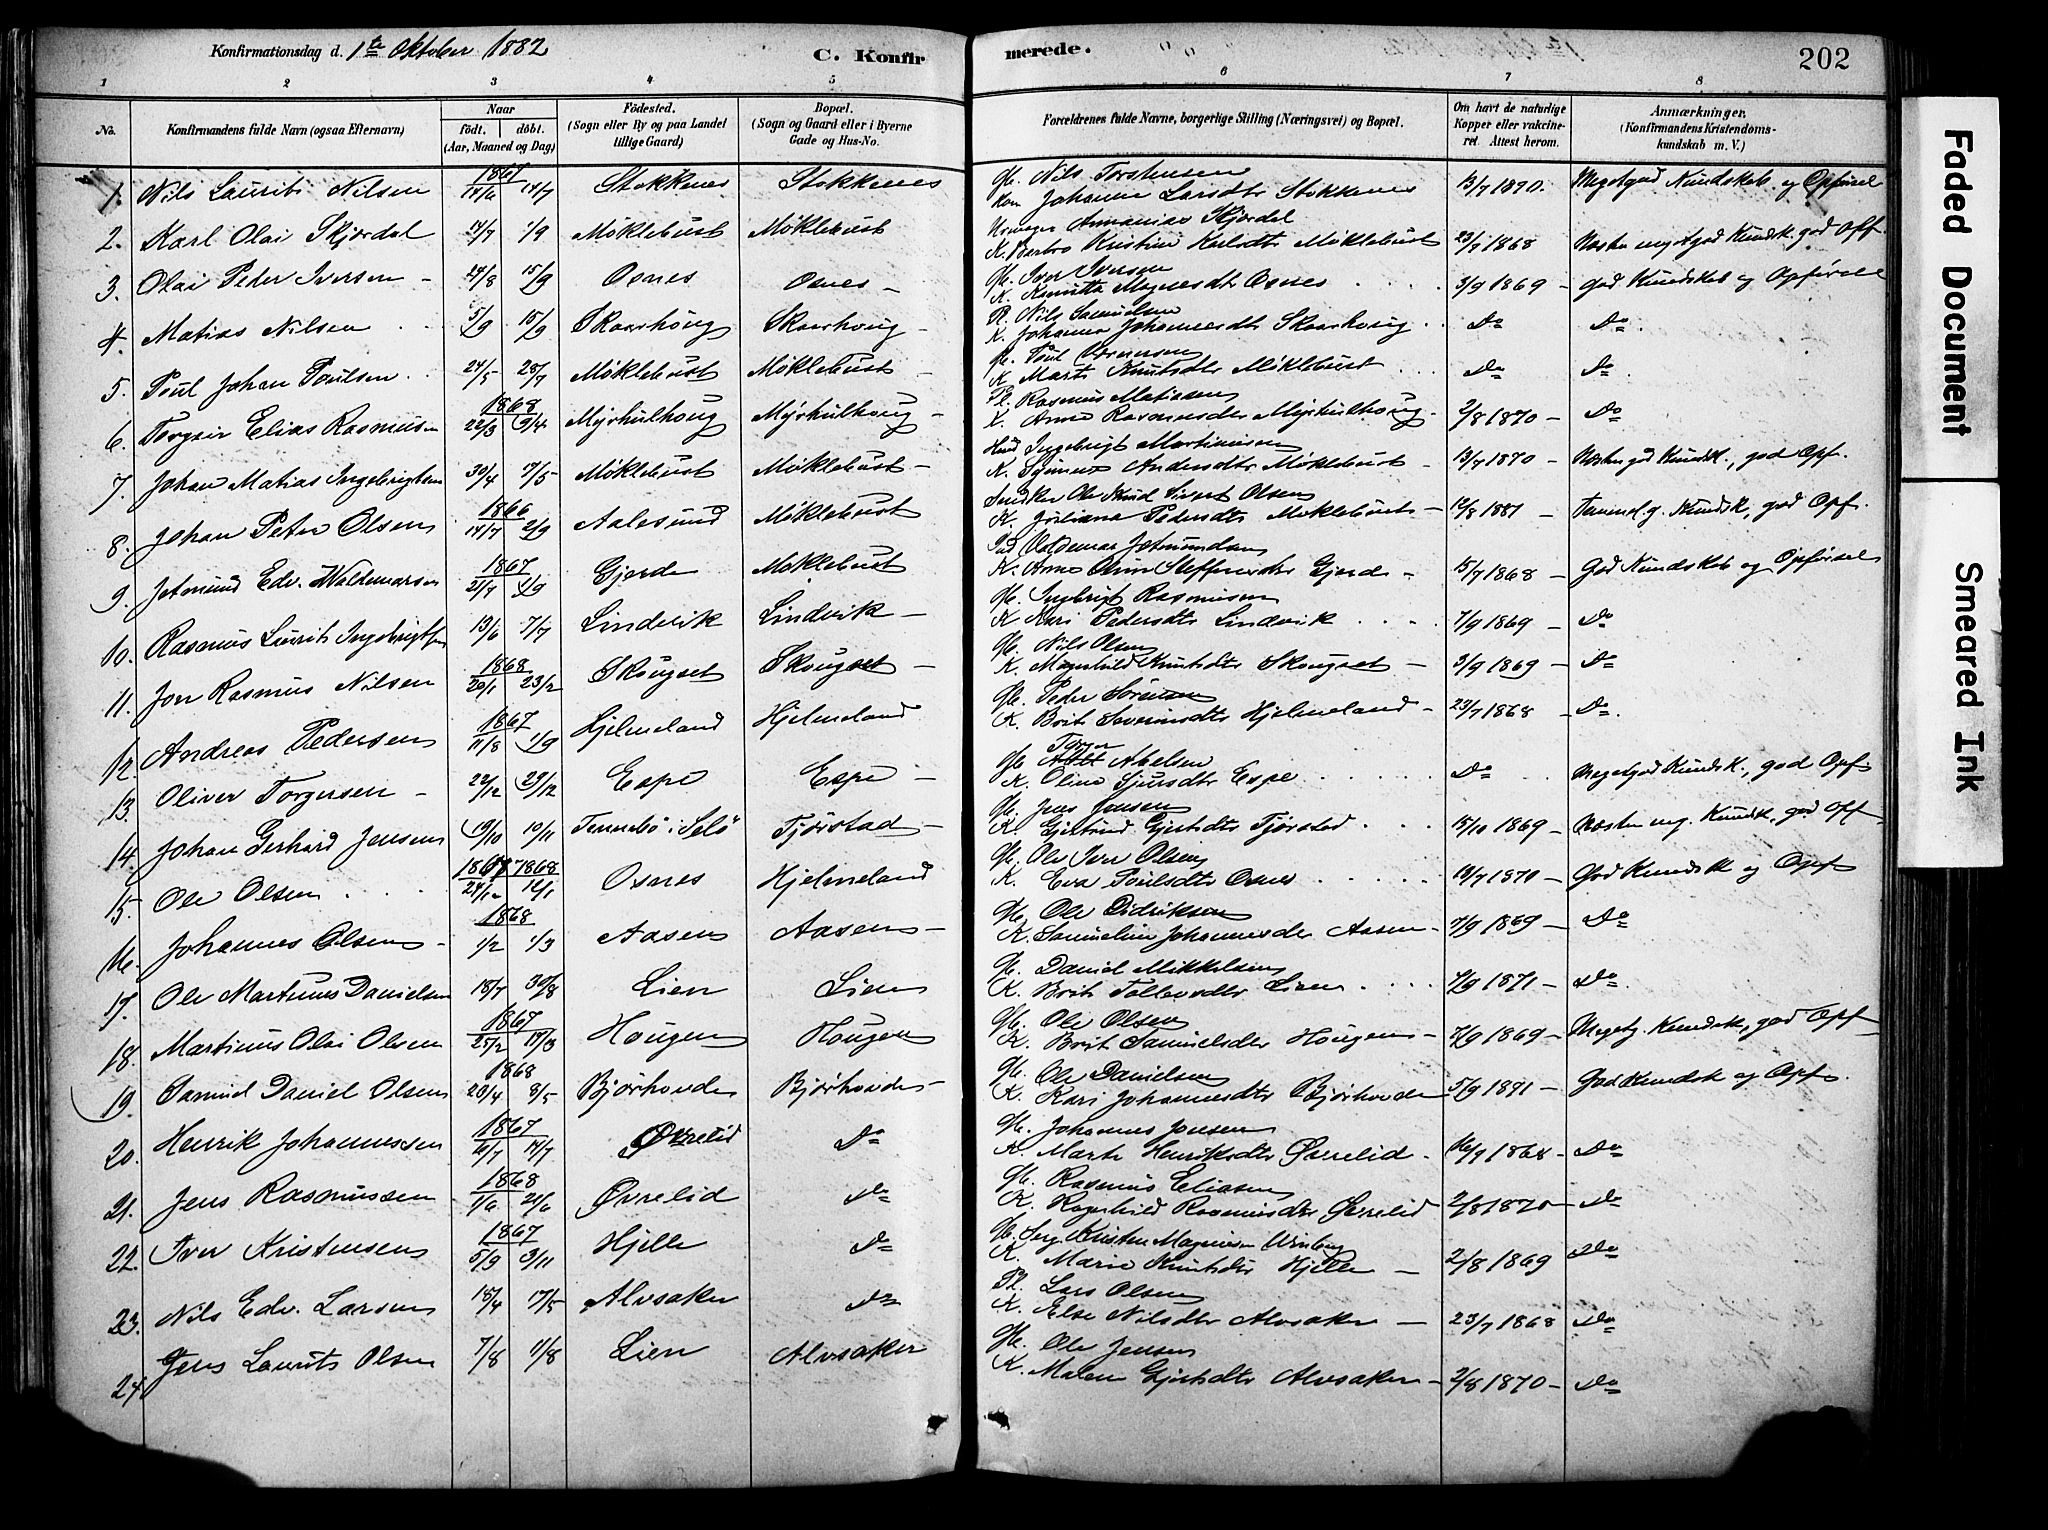 Konfirmationsdag d. 1ste Oktober 1882
C. Konfirmerede.
202
1 2 3 4 5 6 7 8
No. Konfirmandens fulde Navn (ogsaa Efternavn) Naar födt. döbt. (Aar, Maaned og Dag) Födested. (Sogn eller By og paa Landet tillige Gaard) Bopæl. (Sogn og Gaard eller i Byerne Gade og Hus-No. Forældrenes fulde Navne, borgerlige Stilling (Næringsvei) og Bopæl. Om havt de naturlige Kopper eller vakcineret. Attest herom. Anmærkninger. (Konfirmandens Kristendomskundskab m. V.)
1. Nils Laurits Nilsen 14/7 Stokkenes Stokkenes Nils Torstensen Johanne Larsdtr Stokkenes 13/7 1870. Megetgod Kundskab og Opførsel
2. Karl Olai Skjerdal 14/7 1/9 Møklebust Møklebust Ananias Skjerdal K. Kristine Møklebust 23/7 1868 Næsten megetgod Kundsk. god Opf.
3. Olai Peder Iversen 24/8 15/9 Osnes Osnes Iver Iversen K. Magnesdtr Osnes 3/9 1869 God Kundskab og Opførsel
4. Matias Nilsen 5/9 15/9 Skaarhoug Skaarhoug Pl. Nils Samuelsen K. Johanna Johannesdtr Skaarhoug Do Do
5. Poul Johan Poulsen 24/5 28/7 Møklebust Møklebust K. Marte Knutsdtr Møklebust Do Do
6. Torgeir Elias Rasmusen 1868 22/3 9/4 Myrhulhoug Myrhulhoug Pl. Rasmus Matiasen K. Anne Rasmusdtr Myrhulhoug 2/8 1870 Do
7. Johan Matias Ingebrigtsen 30/4 17/5 Møklebust Møklebust Ingebrigt Martinusen K. Andersdtr Møklebust 13/7 1870 Næsten god Kundsk., god Opf.
8. Johan Peter Olsen 1866 14/7 2/9 Aalesund Møklebust Snedker Ole Knud Sivert Olsen K. Juliane Pedersdtr Møklebust 12/8 1881 Temmel. g. Kundsk, god Opf.
9. Jetmund Edv. Waldemarsen 1867 21/7 1/9 Gjerde Møklebust Valdemar Jetmundsen K. Anne Oline Steffensdtr Gjerde 15/7 1868 God Kundskab og Opførsel
10. Rasmus Laurits Ingebrigtsen 13/6 7/7 Lindvik Lindvik Ingebrigt Rasmusen K. Kari Pedersdtr Lindvik 7/9 1869 Do
11. Jon Rasmus Nilsen 1868 20/1 23/2 Skougset Skougset Nils Olsen K. Magnhild Knutsdtr Skougset 3/9 1869 Do
12. Andreas Pedersen 1867 11/8 1/9 Hjelmeland Hjelmeland Peder Sörensen K. Brit Severinsdtr Hjelmeland 23/7 1868 Do.
13. Oliver Torgersen 22/12 29/12 Espe Espe Torger Abelsen K. Oline Sjursdtr Espe Do Megetgod Kundsk., god Opf.
14. Johan Gerhard Jensen 19/10 10/11 Tennebö i Selö Tjørstad Jens Jensen K. Gjertrud Gjertsdtr Tjørstad 15/10 1869 Næsten mg. Kundsk, god Opf.
15. Ole Olsen 1867 1868 24/12 12/1 Osnes Hjelmeland Ole Iver Olsen K. Eva Poulsdtr Osnes 13/7 1870 God Kundsk og Opf.
16. Johannes Olsen 1868 1/2 1/3 Aasen Aasen Ole Didriksen K. Samueline Johannesdtr Aasen 7/9 1869 Do
17. Ole Martinus Danielsen 18/7 30/8 Lien Lien Daniel Mikkelsen K. Brit Tollevsdtr Lien 7/9 1871 Do.
18. Martinus Olai Olsen 1867 25/2 17/3 Hougen Hougen Ole Olsen K. Brit Samuelsdtr Hougen 7/9 1869 Megetg. Kundsk., god Opf
19. Samuel Daniel Olsen 1868 20/4 8/5 Bjørhovde Bjørhovde Ole Danielsen K. Kari Johannesdtr Bjørhovde 5/9 1871 God Kundsk og Opf.
20. Henrik Johannessen 1867 6/7 14/7 Øvrelid Do Johannes Jonsen K. Marte Henriksdtr Øvrelid 16/9 1868 Do
21. Jens Rasmussen 1868 1/6 21/6 Øvrelid Do Rasmus Eliasen K. Ragnhild Rasmusdtr Øvrelid 2/8 1870 Do
22. Iver Kristensen 1867 5/9 3/11 Hjelle Do Serg. Kristen Magnesen K. Marie Knutsdtr Hjelle 2/8 1869 Do
23. Nils Edv. Larsen 15/4 17/5 Alvsaker Do Pl. Lars Olsen K. Else Nilsdtr Alvsaker 23/7 1868 Do
24. Jens Laurits Olsen 7/8 11/8 Lien Alvsaker Ole Jensen K. Malene Gjertsdtr Alvsaker 2/8 1870 Do
Faded Document
Smeared Ink